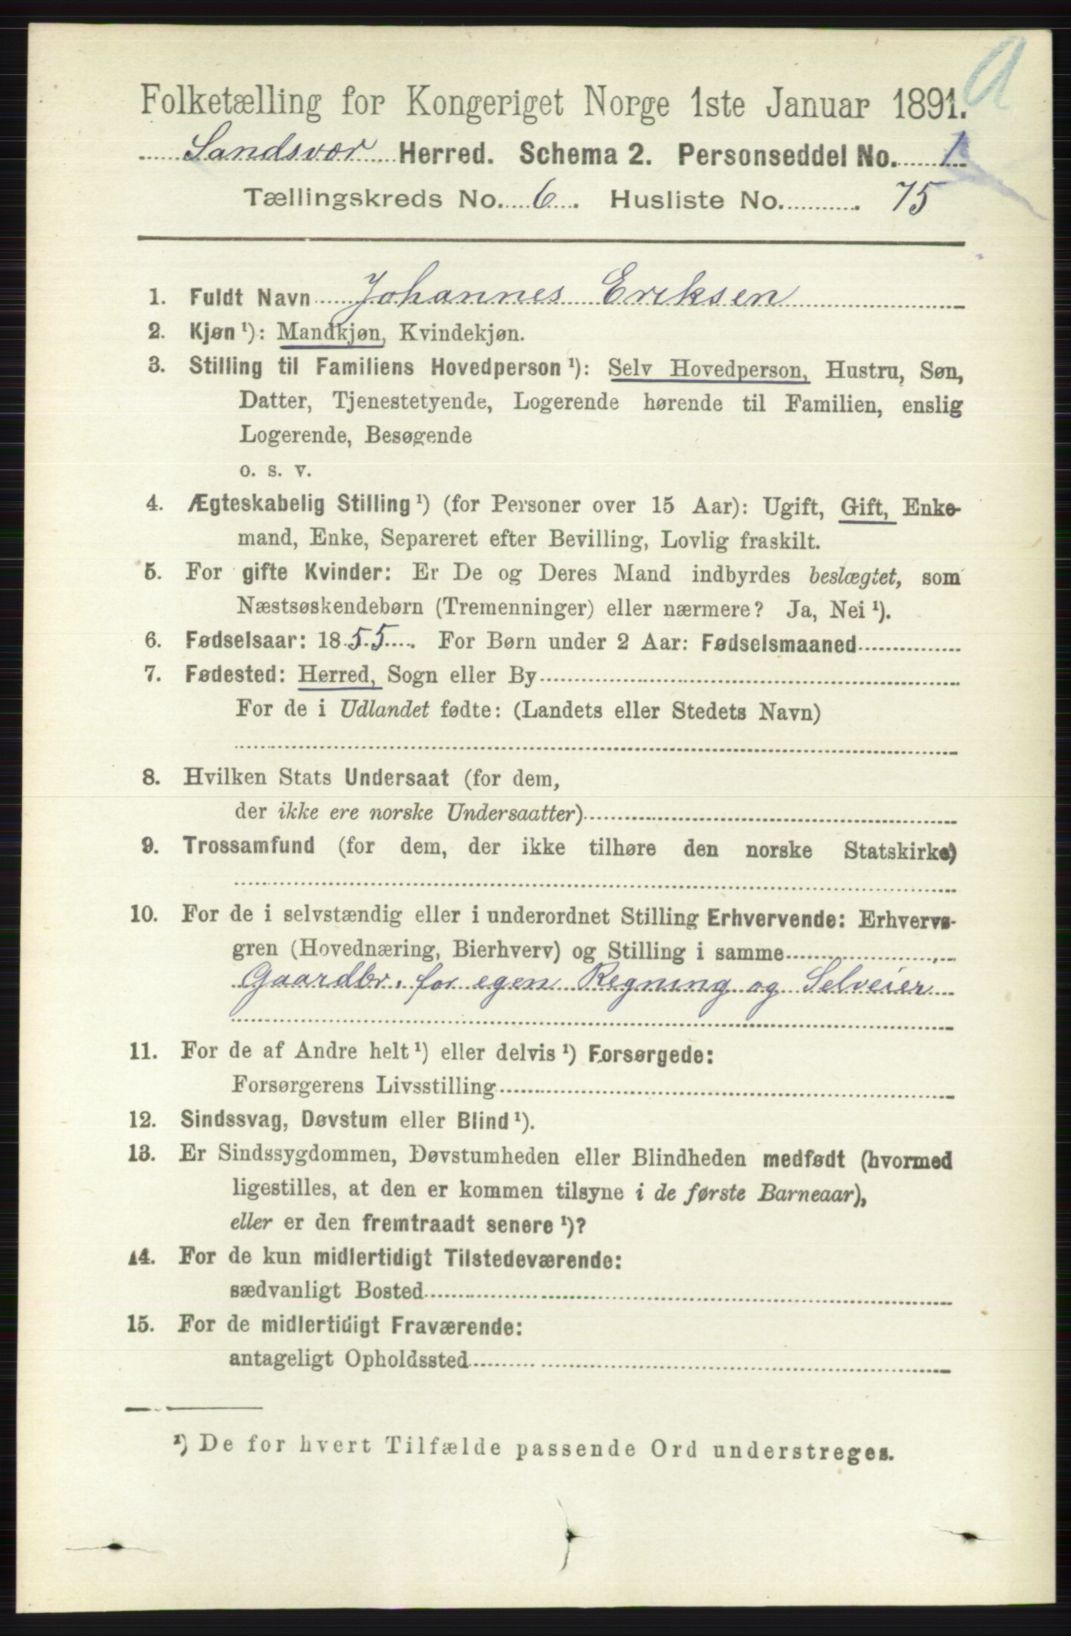 A
Folketælling for Kongeriget Norge 1ste Januar 1891.
Sandsvær Herred. Schema 2. Personseddel No. 1
Tællingskreds No. 6. Husliste No. 75
1. Fuldt Navn Johannes Eriksen
2. Kjøn ¹): Mandkjøn, Kvindekjøn.
3. Stilling til Familiens Hovedperson ¹): Selv Hovedperson, Hustru, Søn,
Datter, Tjenestetyende, Logerende hørende til Familien, enslig
Logerende, Besøgende
o. s. v.
4. Ægteskabelig Stilling ¹) (for Personer over 15 Aar): Ugift, Gift, Enke-
mand, Enke, Separeret efter Bevilling, Lovlig fraskilt.
5. For gifte Kvinder: Er De og Deres Mand indbyrdes beslægtet, som
Næstsøskendebørn (Tremenninger) eller nærmere? Ja, Nei ¹).
6. Fødselsaar: 1855. For Børn under 2 Aar: Fødselsmaaned
7. Fødested: Herred, Sogn eller By
For de i Udlandet fødte: (Landets eller Stedets Navn)
8. Hvilken Stats Undersaat (for dem,
der ikke ere norske Undersaatter)
9. Trossamfund (for dem, der ikke tilhøre den norske Statskirke)
10. For de i selvstændig eller i underordnet Stilling Erhvervende: Erhvervs-
gren (Hovednæring, Bierhverv) og Stilling i samme
Gaardbr. for egen Regning og Selveier
11. For de af Andre helt ¹) eller delvis ¹) Forsørgede:
Forsørgerens Livsstilling
12. Sindssvag, Døvstum eller Blind ¹).
13. Er Sindssygdommen, Døvstumheden eller Blindheden medfødt (hvormed
ligestilles, at den er kommen tilsyne i de første Barneaar),
eller er den fremtraadt senere ¹)?
14. For de kun midlertidigt Tilstedeværende:
sædvanligt Bosted
15. For de midlertidigt Fraværende:
antageligt Opholdssted
¹) De for hvert Tilfælde passende Ord understreges.